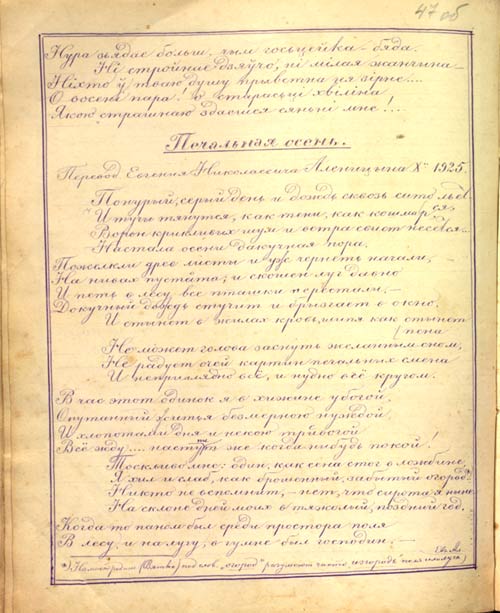 47 об
Нуда зьядае больш, чым госьцейка-бяда.
Ні стройнае дзяўчо, ні мілая жанчына —
Ніхто ў тваю душу прыветна ня зірне...
О восені пара! О старасьці хвіліна
Якою страшнаю здаешся сяньні мне!...
Печальная осень.
Перевод Евгения Николаевича Аленицына X 1925.
Понурый, серый день и дождь сквозь сито льёт
И тучи тянутся, как тени, как кошмар
Ворон крикливых шум и ветра стон несётся
Настала осени докучная пора.
Пожелкли древ листы и уж чернеть начали,
На нивах пустота, и скошен луг давно
И петь в лесу все пташки перестали, —
Докучный дождь стучит и брызгает в окно,
И стынет в жилах кровь, как стынет
пена
Не может голова заснуть желанным сном,
Не радует очей картин печальных смена
И неприглядно всё, и нудно всё кругом.
В час этот одинок я в хижине убогой,
Опутанный житья безмерною нуждой,
И хлопотами дня и некою тревогой
Всё жду.... наступит же когда нибудь покой!
Тоскливо мне: один, как сена стог в ложбине,
Я хил и слаб, как брошенный, забытый огород*)
Никто не вспомнит, — нет, что сирота я ныне
На склоне дней моих в тяжолый, поздний год.
Когда то паном был среди простора поля
В лесу, и на лугу, в гумне был господин, —
*) На м. родине (Вятке) под слов. „огород" разумеют часто изгородь